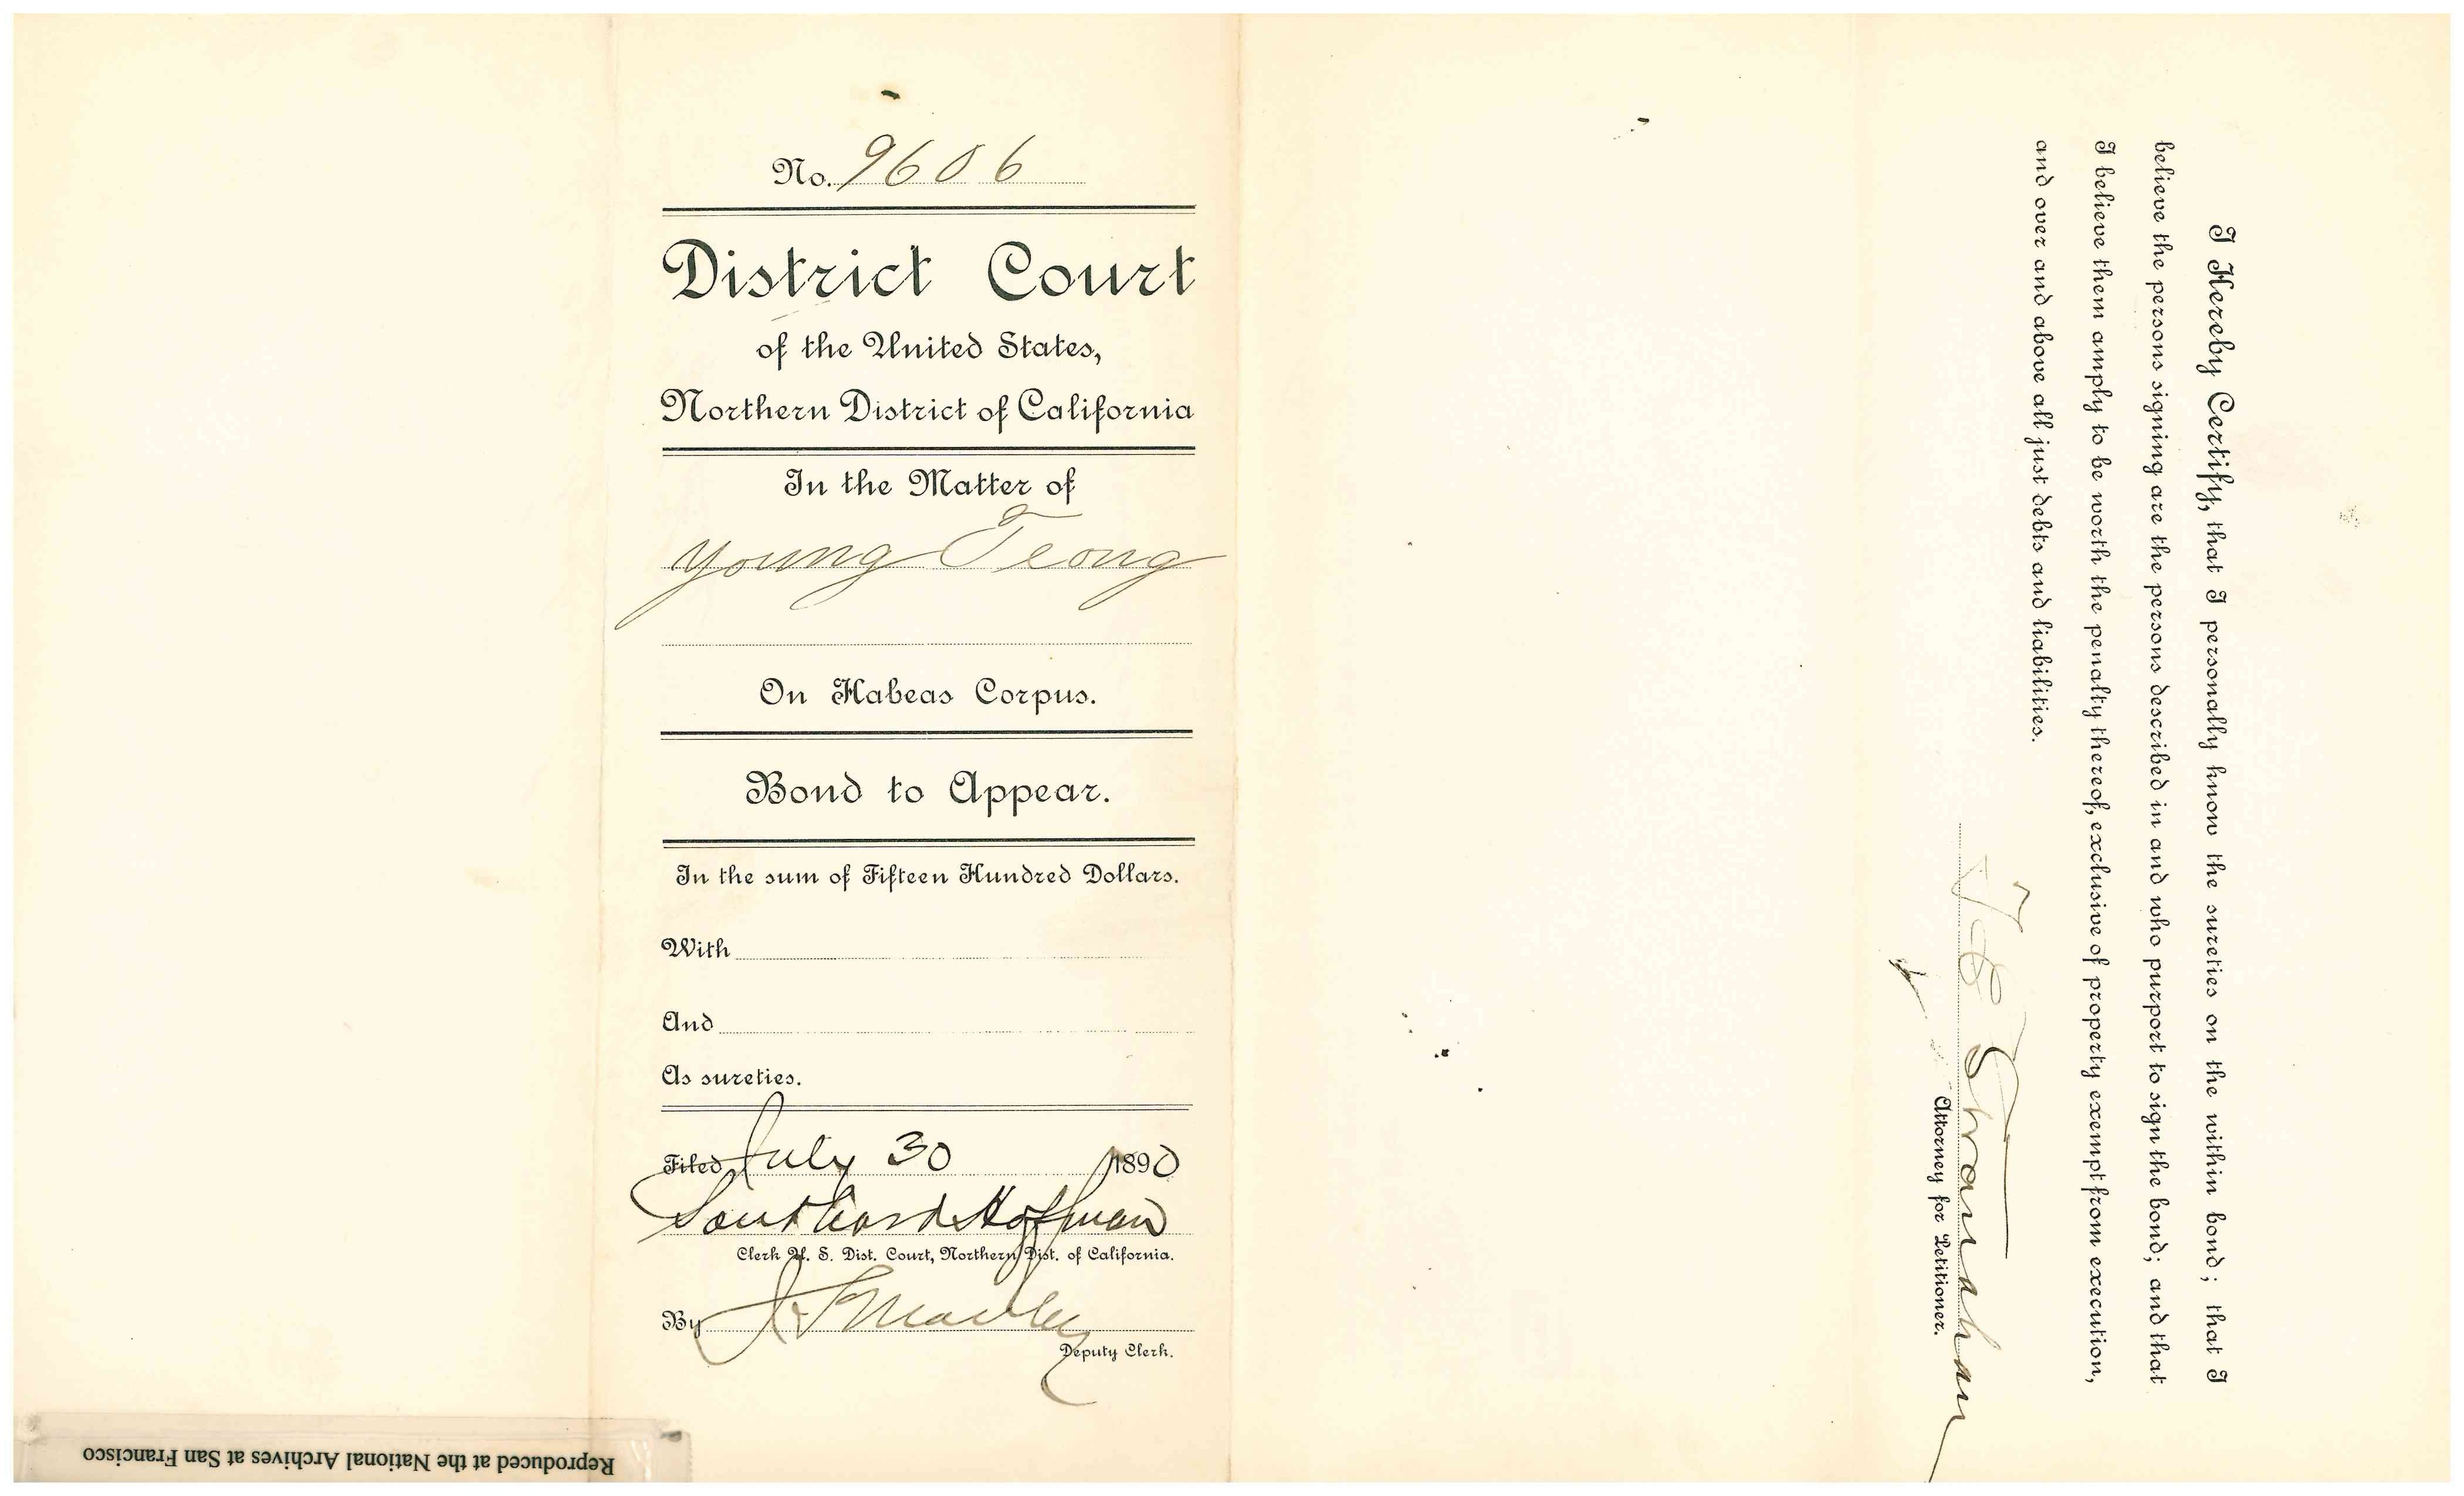 No. 9606
District Court
of the United States,
Northern District of California
In the Matter of
Young Teong
On Habeas Corpus.
Bond to Appear.
In the sum of Fifteen Hundred Dollars.
With
And
As sureties.
Filed July 30 1890
Southard Hoffman
Clerk U. S. Dist. Court, Northern Dist. of California.
By
Deputy Clerk.
I Hereby Certify, that I personally know the sureties on the within bond; that I
believe the persons signing are the persons described in and who purport to sign the bond; and that
I believe them amply to be worth the penalty thereof, exclusive of property exempt from execution,
and over and above all just debts and liabilities.
Stranahan
Attorney for Petitioner.
Reproduced at the National Archives at San Francisco